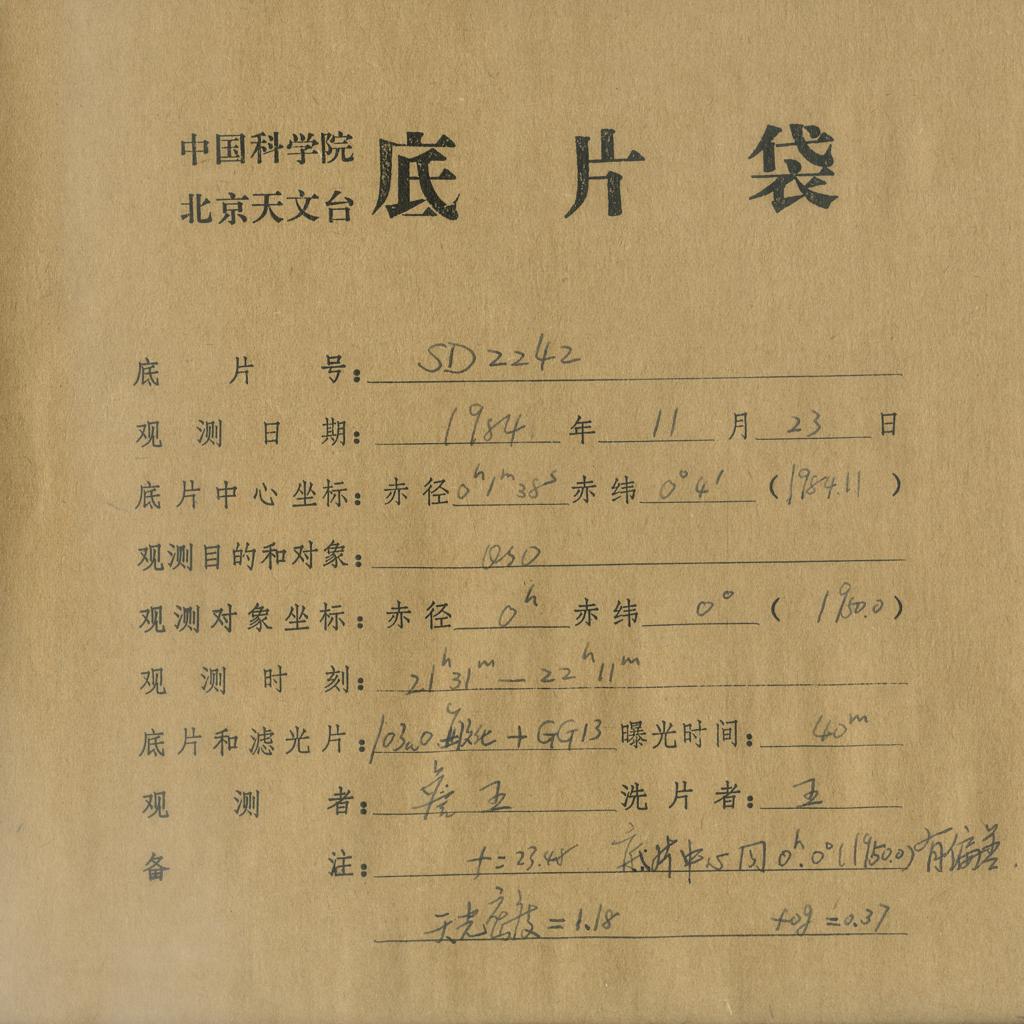 中国科学院
北京天文台
底片袋
底片号：SD2242
观测日期：1984年11月23日
底片中心坐标：赤径0h1m38s赤纬0°4′（1984.11）
观测目的和对象：QSO
观测对象坐标：赤径0h赤纬0°（1950.0）
观测时刻：21h31m—22h11m
底片和滤光片：103aO敏化+GG13曝光时间：40m
观测者：王洗片者：王
备注：f=23.48 底片中心同0h.0°(1950.0)有偏差.
天光密度=1.18 fog=0.37